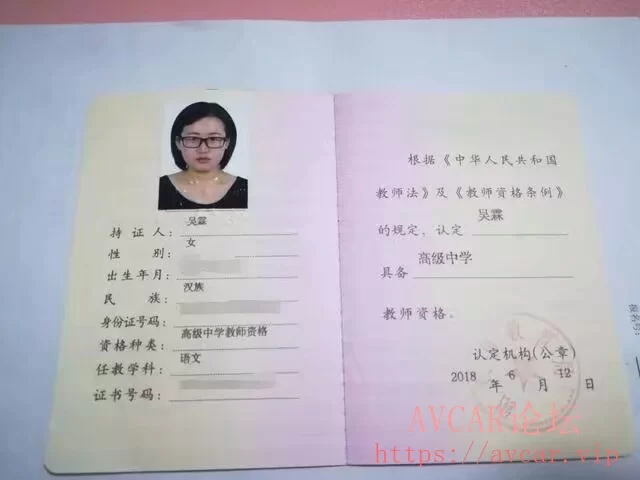 持证人：吴霖
性别：女
出生年月：
民族：汉族
身份证号码：
资格种类：高级中学教师资格
任教学科：语文
证书号码：
根据《中华人民共和国
教师法》及《教师资格条例》
的规定，认定 吴霖
具备 高级中学
教师资格。
认定机构(公章)
2018年6月12日
AVCAR论坛
https://avcar.vip